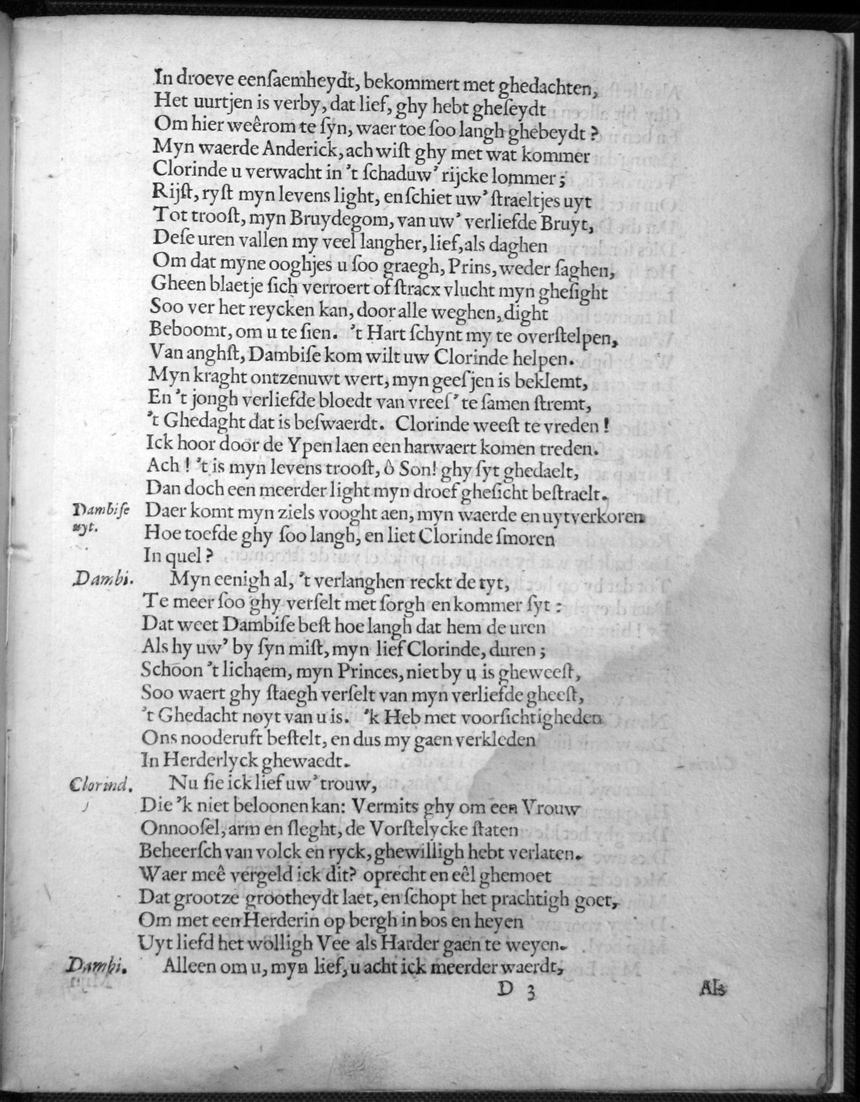 In droeve eenſaemheydt, bekommert met ghedachten,
Het uurtjen is verby, dat lief, ghy hebt gheſeydt
Om hier weêrom te ſyn, waer toe ſoo langh ghebeydt ?
Myn waerde Anderick, ach wiſt ghy met wat kommer
Clorinde u verwacht in 't ſchaduw' rijcke lommer ;
Rijſt, ryſt myn levens light, en ſchiet uw' ſtraeltjes uyt
Tot trooſt, myn Bruydegom, van uw' verliefde Bruyt,
Deſe uren vallen my veel langher, lief, als daghen
Om dat myne ooghjes u ſoo graegh, Prins, weder ſaghen,
Gheen blaetje ſich verroert of ſtracx vlucht myn gheſight
Soo ver het reycken kan, door alle weghen, dight
Beboomt, om u te ſien. 't Hart ſchynt my te overſtelpen,
Van anghſt, Dambiſe kom wilt uw Clorinde helpen.
Myn kraght ontzenuwt wert, myn geeſjen is beklemt,
En 't jongh verliefde bloedt van vreeſ' te ſamen ſtremt,
't Ghedaght dat is beſwaerdt. Clorinde weeſt te vreden !
Ick hoor door de Ypen laen een harwaert komen treden.
Ach ! 't is myn levens trooſt, ô Son! ghy ſyt ghedaelt,
Dan doch een meerder light myn droef gheſicht beſtraelt.
Dambiſe uyt. Daer komt myn ziels vooght aen, myn waerde en uytverkoren
Hoe toefde ghy ſoo langh, en liet Clorinde ſmoren
In quel ?
Dambi. Myn eenigh al, 't verlanghen reckt de tyt,
Te meer ſoo ghy verſelt met ſorgh en kommer ſyt :
Dat weet Dambiſe beſt hoe langh dat hem de uren
Als hy uw' by ſyn miſt, myn lief Clorinde, duren ;
Schoon 't lichaem, myn Princes, niet by u is gheweeſt,
Soo waert ghy ſtaegh verſelt van myn verliefde gheeſt,
't Ghedacht noyt van u is. 'k Heb met voorſichtigheden
Ons nooderuft beſtelt, en dus my gaen verkleden
In Herderlyck ghewaedt.
Clorind. Nu ſie ick lief uw' trouw,
Die 'k niet beloonen kan: Vermits ghy om een Vrouw
Onnooſel, arm en ſleght, de Vorſtelycke ſtaten
Beheerſch van volck en ryck, ghewilligh hebt verlaten.
Waer meê vergeld ick dit? oprecht en eêl ghemoet
Dat grootze grootheydt laet, en ſchopt het prachtigh goet,
Om met een Herderin op bergh in bos en heyen
Uyt liefd het wolligh Vee als Harder gaen te weyen.
Dambi. Alleen om u, myn lief, u acht ick meerder waerdt,
D 3 Als